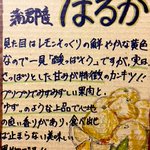 蒲郡産
はるか
見た目はレモンそっくりの鮮やかな黄色
なので一見「酸っぱそう」ですが、実は、
さっぱりとした甘みが特徴のカンキツ!!
プリプリでみずみずしい果肉と、
ゆず。のような上品で
の良い香りがあり、食べ出
は止まらない美味しい